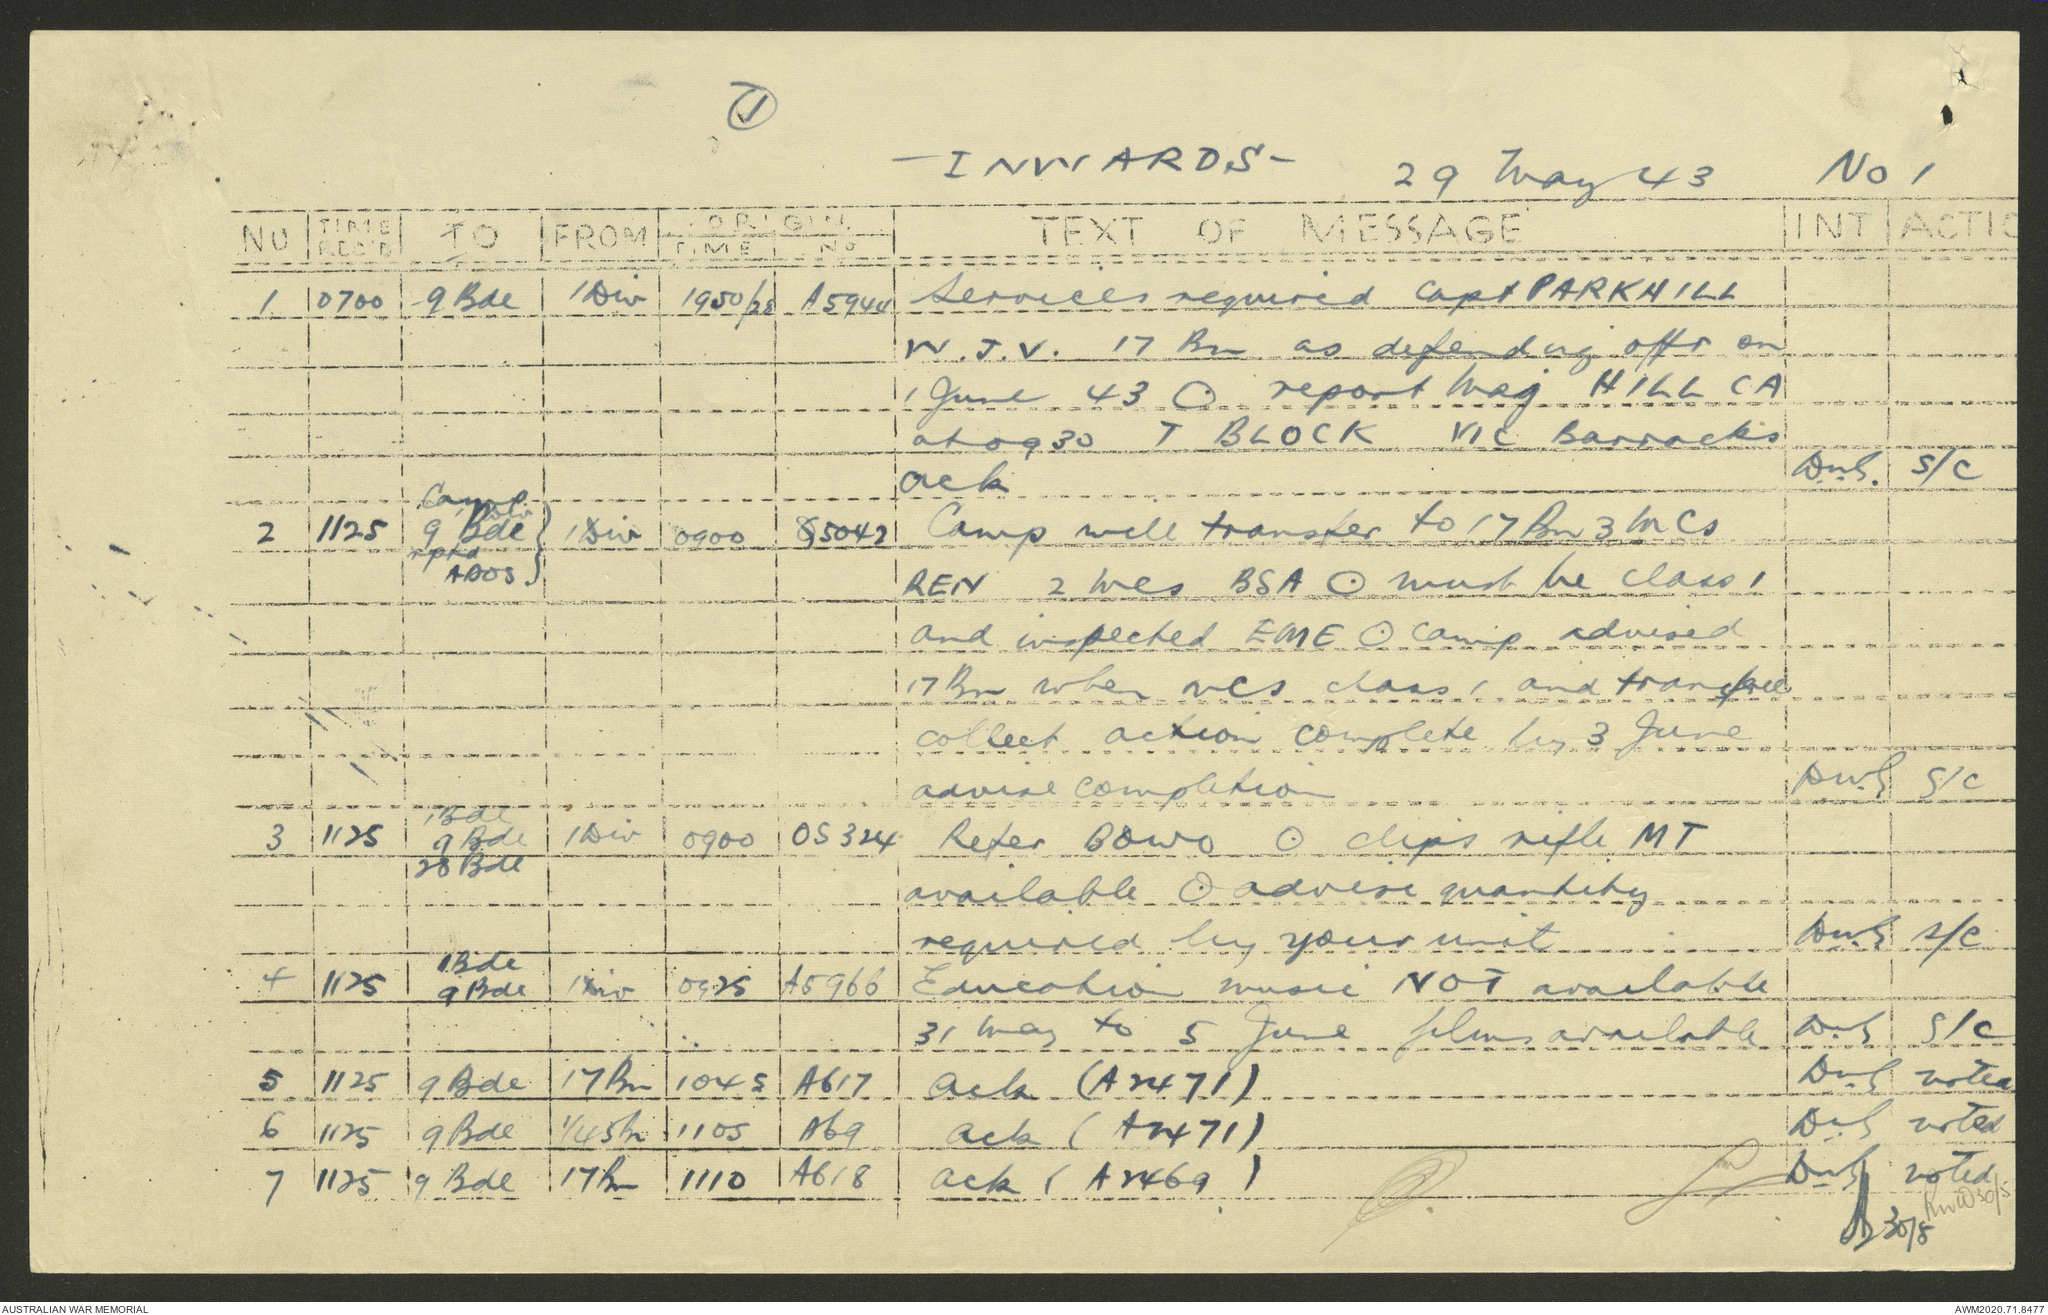 1
- INWARDS - 29 May 43 No 1
NO TIME REC'D TO FROM ORIGIN TIME NO TEXT OF MESSAGE INT ACTIO
1 0700 9 Bde 1 Div 1950/28 A5944 Services required Capt PARKHILL
W.J.V. 17 Bn as defending offr on
1 June 43 ⊙ report Maj HILL CA
at 0930 T BLOCK VIC Barracks
ack S/C
2 1125 Camp 9 Bde rptd ADOS } 1 Div 0900 Q5042 Camp will transfer to 17 Bn 3 MCs
REN 2 Mcs BSA ⊙ must be class 1
and inspected EME ⊙ Camp advised
17 Bn when mcs class 1 and
collect action complete by 3 June
advise completion S/C
3 1125 1 Bde 9 Bde 28 Bde 1 Div 0900 OS324 Refer BOWO ⊙ clips rifle MT
available ⊙ advise quantity
required by your unit S/C
4 1125 1 Bde 9 Bde 1 Div 0925 A5966 Education music NOT available
31 May to 5 June films available S/C
5 1125 9 Bde 17 Bn 1045 A617 ack (A2471) noted
6 1125 9 Bde 1/45 Bn 1105 A69 ack (A2471) noted
7 1125 9 Bde 17 Bn 1110 A618 ack (A2469) noted
30/5
AUSTRALIAN WAR MEMORIAL AWM2020.71.8477